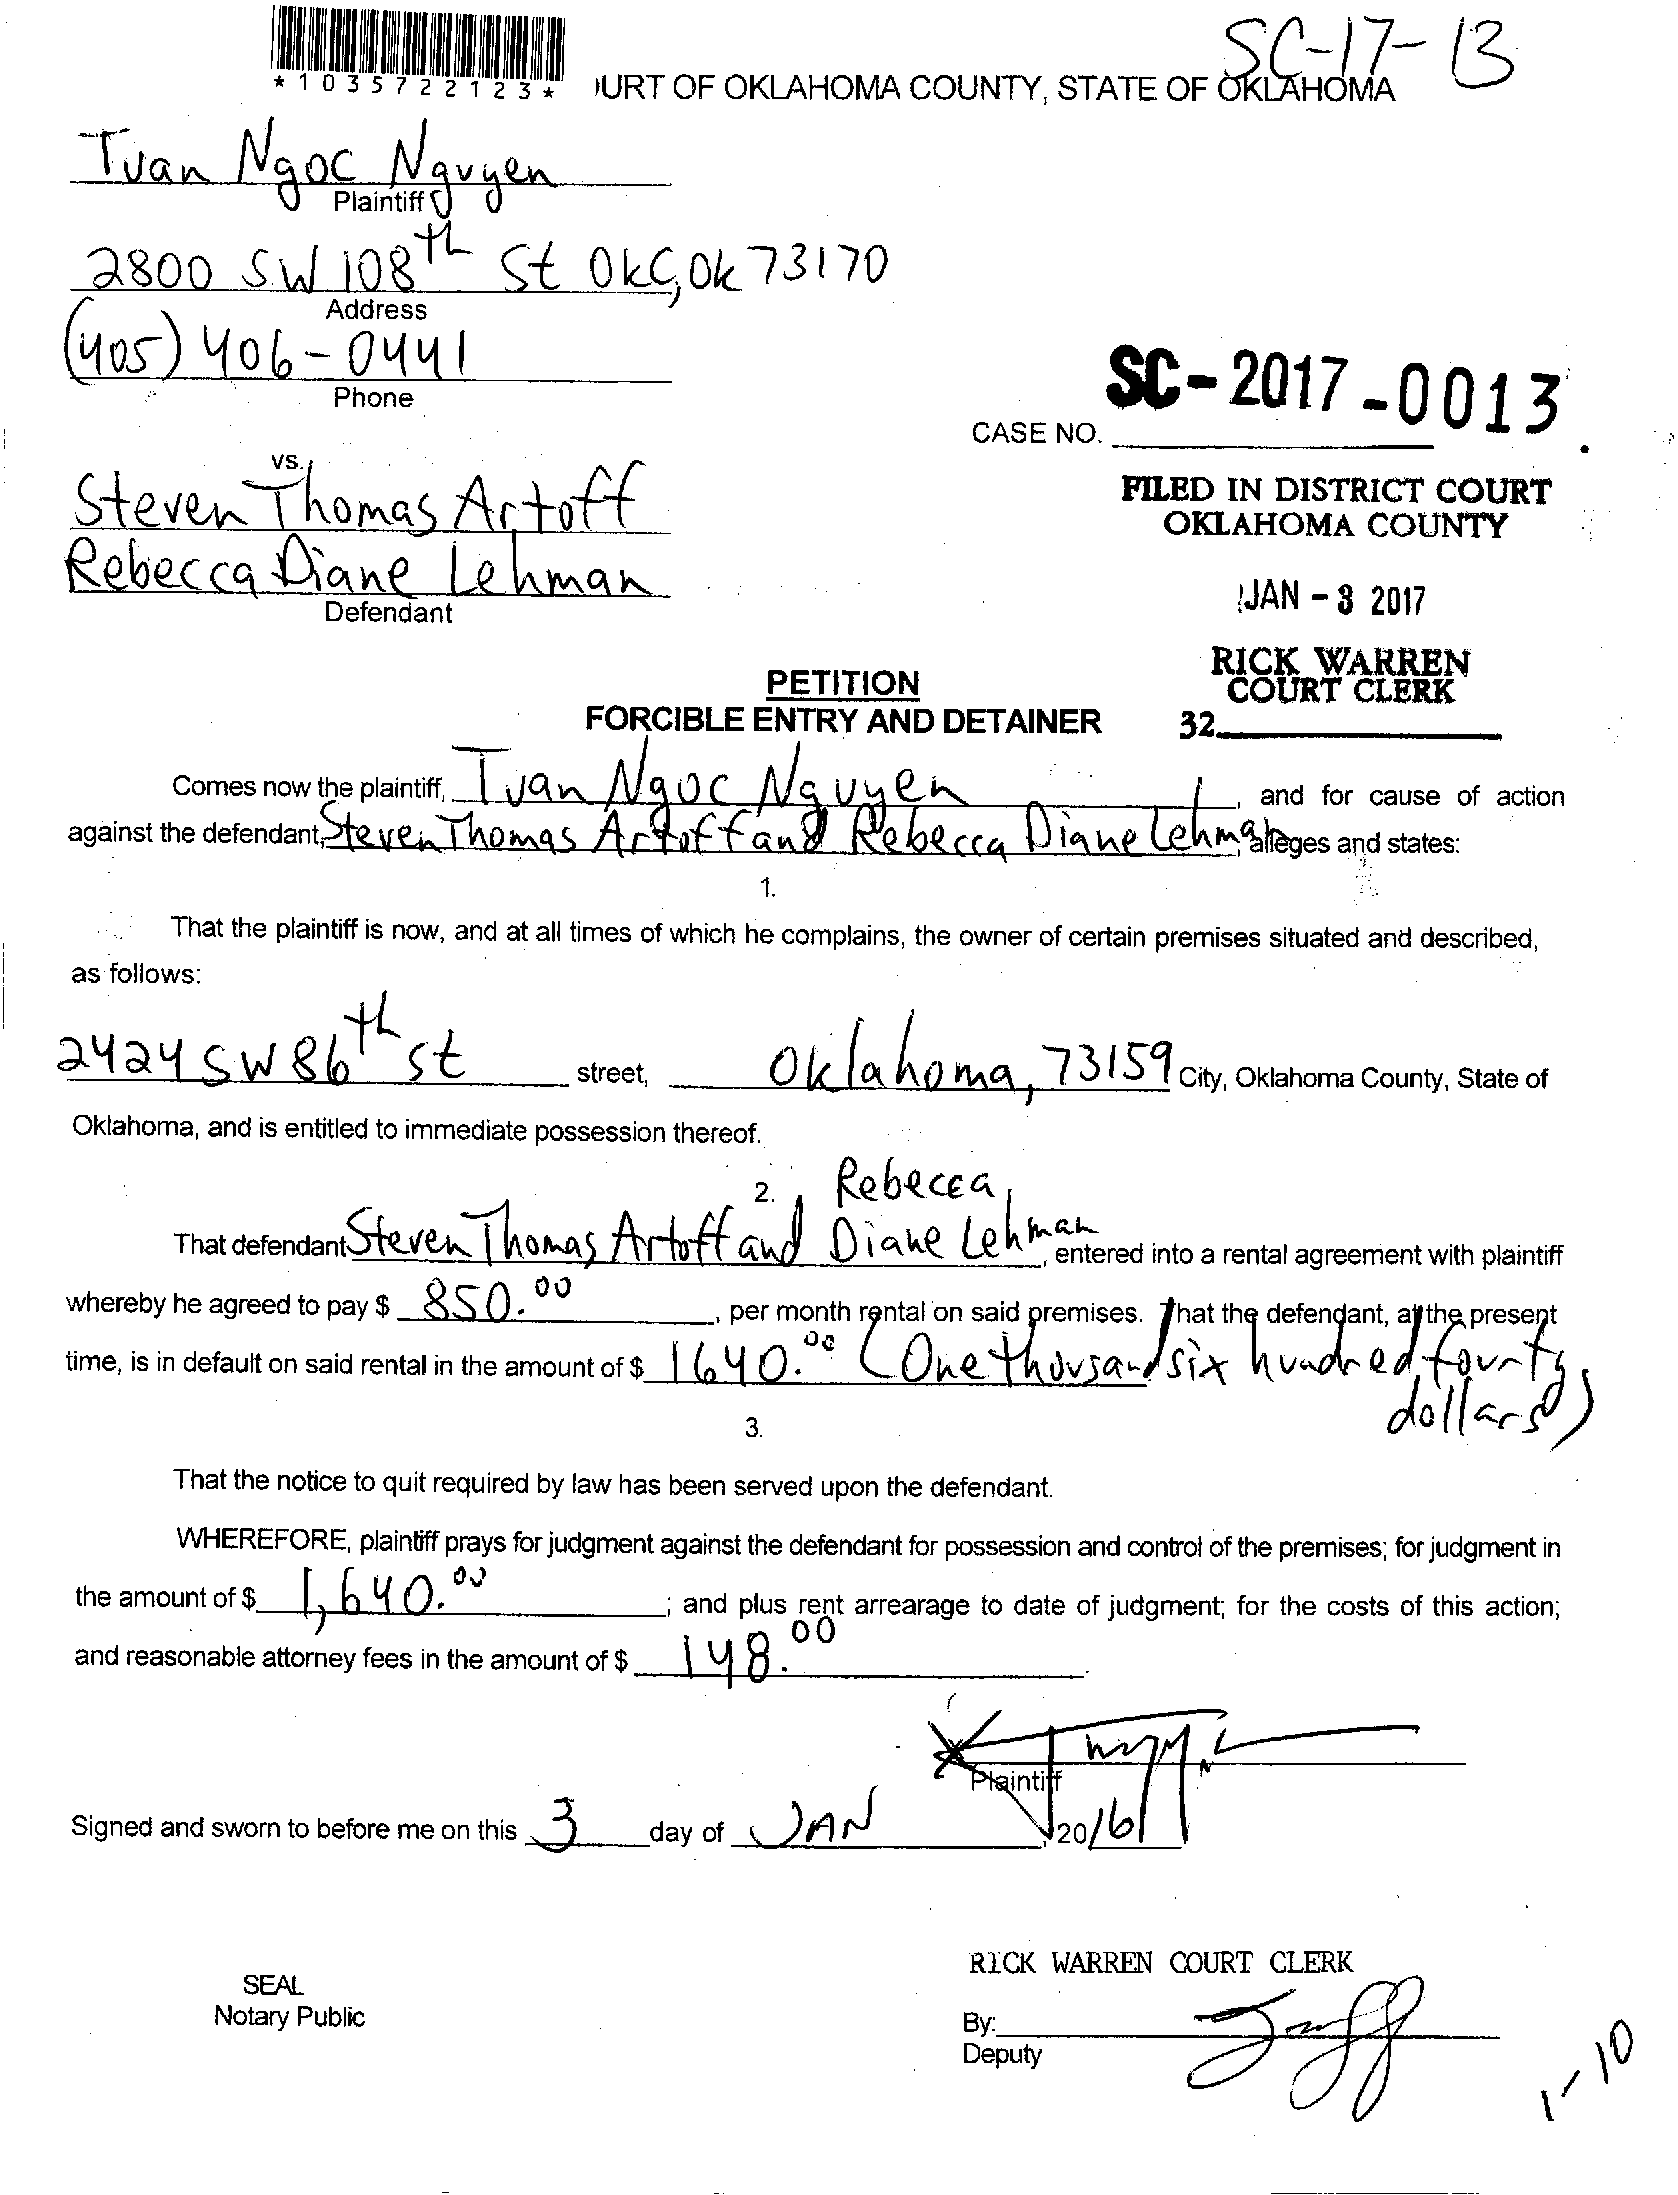 SC-17-13
*1035722123* URT OF OKLAHOMA COUNTY, STATE OF OKLAHOMA
Tuan Ngoc Nguyen
Plaintiff
2800 SW 108th St OKC, OK 73170
Address
(405) 406-0441
Phone
SC-2017-0013
CASE NO.
vs.
Steven Thomas Artoff
Rebecca Diane Lehman
Defendant
FILED IN DISTRICT COURT
OKLAHOMA COUNTY
JAN - 3 2017
RICK WARREN
COURT CLERK
32
PETITION
FORCIBLE ENTRY AND DETAINER
Comes now the plaintiff, Tuan Ngoc Nguyen, and for cause of action
against the defendant, Steven Thomas Artoff and Rebecca Diane Lehman, alleges and states:
1.
That the plaintiff is now, and at all times of which he complains, the owner of certain premises situated and described,
as follows:
2424 SW 86th St street, Oklahoma, 73159 City, Oklahoma County, State of
Oklahoma, and is entitled to immediate possession thereof.
2.
Rebecca
That defendant Steven Thomas Artoff and Diane Lehman, entered into a rental agreement with plaintiff
whereby he agreed to pay $ 850.00, per month rental on said premises. That the defendant, at the present
time, is in default on said rental in the amount of $ 1640.00 (One thousand six hundred fourty
dollars)
3.
That the notice to quit required by law has been served upon the defendant.
WHEREFORE, plaintiff prays for judgment against the defendant for possession and control of the premises; for judgment in
the amount of $ 1,640.00; and plus rent arrearage to date of judgment; for the costs of this action;
and reasonable attorney fees in the amount of $ 148.00
Plaintiff
Signed and sworn to before me on this 3 day of JAN, 2016
SEAL
Notary Public
RICK WARREN COURT CLERK
By:
Deputy
1-10